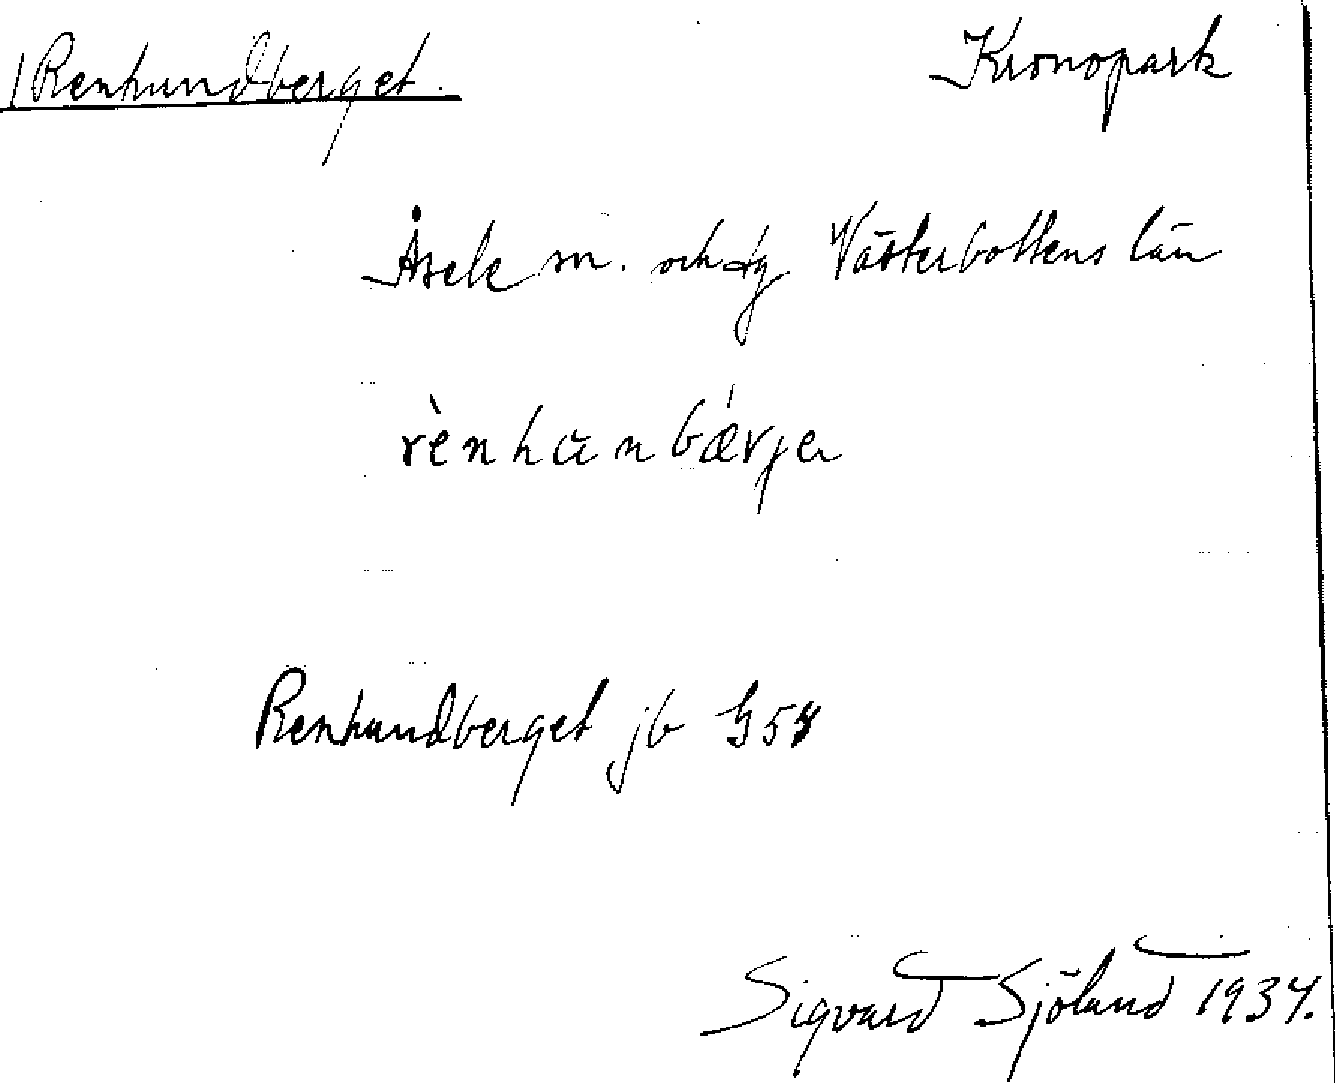 Renhundberget. Kronopark
Åsele sn. och tg Västerbottens län
rènhŭnbǽrje
Renhundberget jb
Sigvard Sjöland 1934.